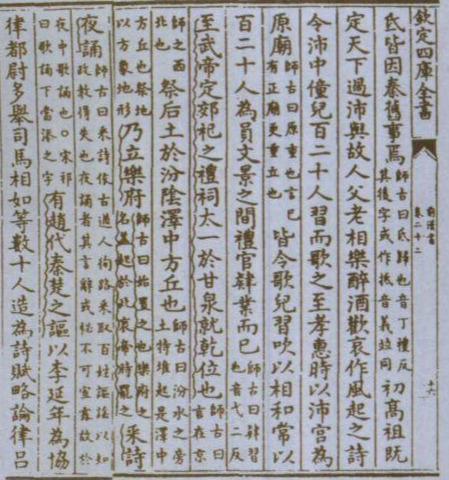 欽定四庫全書 前漢書 卷二十二 十六
氐皆因秦舊事焉師古曰氐歸也音丁禮反其後字或作抵音義竝同初高祖既
定天下過沛與故人父老相樂醉酒歡哀作風起之詩
令沛中僮兒百二十人習而歌之至孝惠時以沛宫為
原廟師古曰原重也言已有正廟更重立也皆令歌兒習吹以相和常以
百二十人為員文景之間禮官肄業而已師古曰肄習也音弋二反
至武帝定郊祀之禮祠太一於甘泉就乾位也師古曰言在京
師之西北也祭后土於汾陰澤中方丘也師古曰汾水之旁土特堆起是澤中
方丘也祭地以方象地形乃立樂府師古曰始置之也樂府之名蓋起於此哀帝時罷之采詩
夜誦師古曰采詩依古遒人徇路采取百姓謳謡以知政教得失也夜誦者其言辭或祕不可宣露故於
夜中歌誦也○宋祁曰歌誦下當添之字有趙代秦楚之謳以李延年為協
律都尉多舉司馬相如等數十人造為詩賦略論律吕